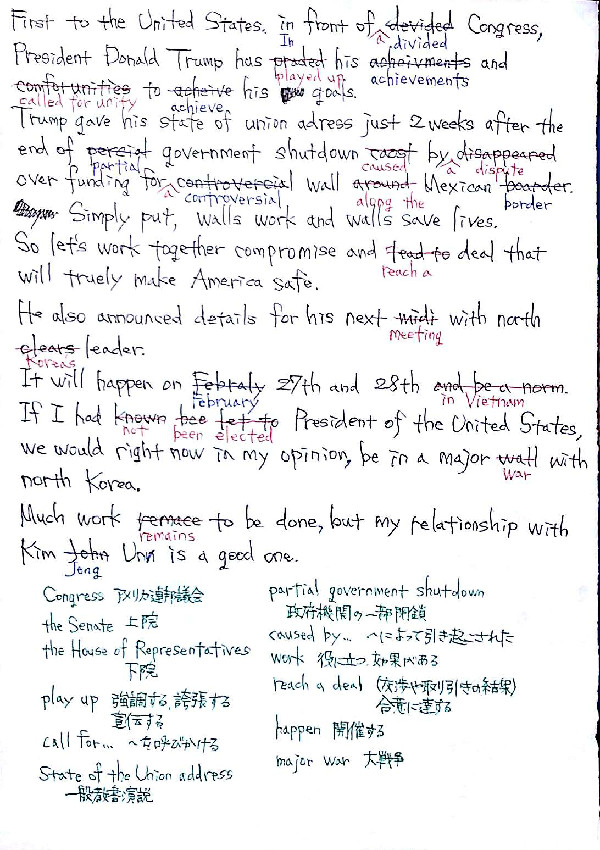 First to the United States. in front of devided Congress,
In a divided
President Donald Trump has praded his acheivments and
played up achievements
comfortunities to acheive his goals.
called for unity achieve
Trump gave his state of union adress just 2 weeks after the
end of percial government shutdown coast by disappeared
partial caused a dispute
over funding for controvercial wall around Mexican boarder.
a controversial along the border
Simply put, walls work and walls save lives.
So let's work together compromise and lead to deal that
reach a
will truely make America safe.
He also announced details for his next midi with north
meeting
clears leader.
Koreas
It will happen on Febraly 27th and 28th and be a norm.
February in Vietnam
If I had known bee let to President of the United States,
not been elected
we would right now in my opinion, be in a major wall with
war
north Korea.
Much work remace to be done, but my relationship with
remains
Kim John Unn is a good one.
Jeng
Congress アメリカ連邦議会
the Senate 上院
the House of Representatives
下院
play up 強調する, 誇張する
宣伝する
call for... 〜を呼びかける
State of the Union address
一般教書演説
partial government shutdown
政府機関の一部閉鎖
caused by... 〜によって引き起こされた
work 役に立つ, 効果がある
reach a deal (交渉や取り引きの結果)
合意に達する
happen 開催する
major war 大戦争